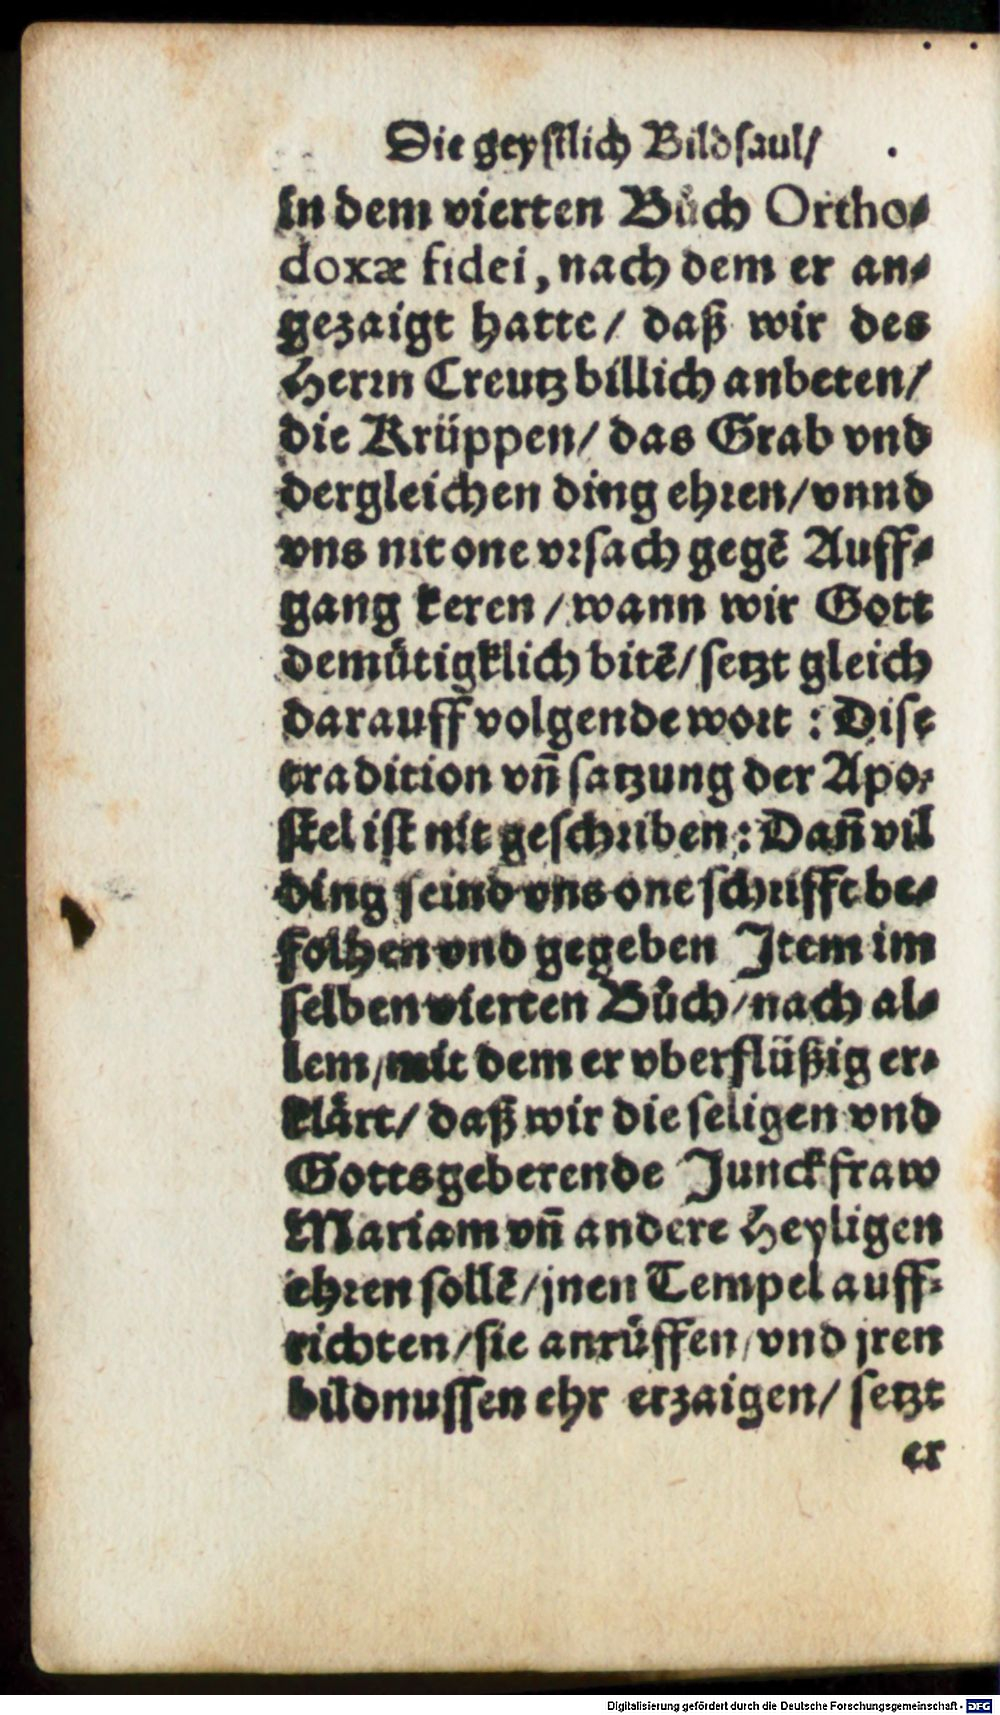 Die geystlich Bildsaul/
in dem vierten Bůch Ortho-
doxæ fidei, nach dem er an-
gezaigt hatte/ daß wir des
Herrn Creutz billich anbeten/
die Krüppen/ das Grab vnd
dergleichen ding ehren/ vnnd
vns nit one vrsach gegē Auff-
gang keren/ wann wir Gott
demütigklich bitē/ setzt gleich
darauff volgende wort : Dise
tradition vñ satzung der Apo-
stel ist nit geschriben: Dañ vil
ding seind vns one schrifft be-
folhen vnd gegeben Item im
selben vierten Bůch/ nach al-
lem/ mit dem er vberflüßig er-
klärt/ daß wir die seligen vnd
Gottsgeberende Junckfraw
Mariam vñ andere Heyligen
ehren sollē/ jnen Tempel auff-
richten/ sie anrůffen/ vnd jren
bildnussen ehr erzaigen/ setzt
er
Digitalisierung gefördert durch die Deutsche Forschungsgemeinschaft - DFG